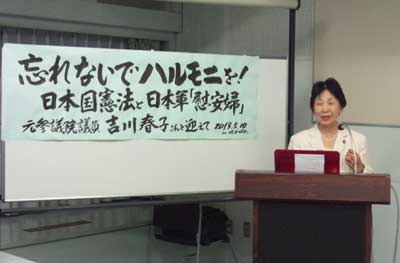 忘れないでハルモニを!
日本国憲法と日本軍「慰安婦」
元参議院議員 吉川春子さんを迎えて 2013.2.10